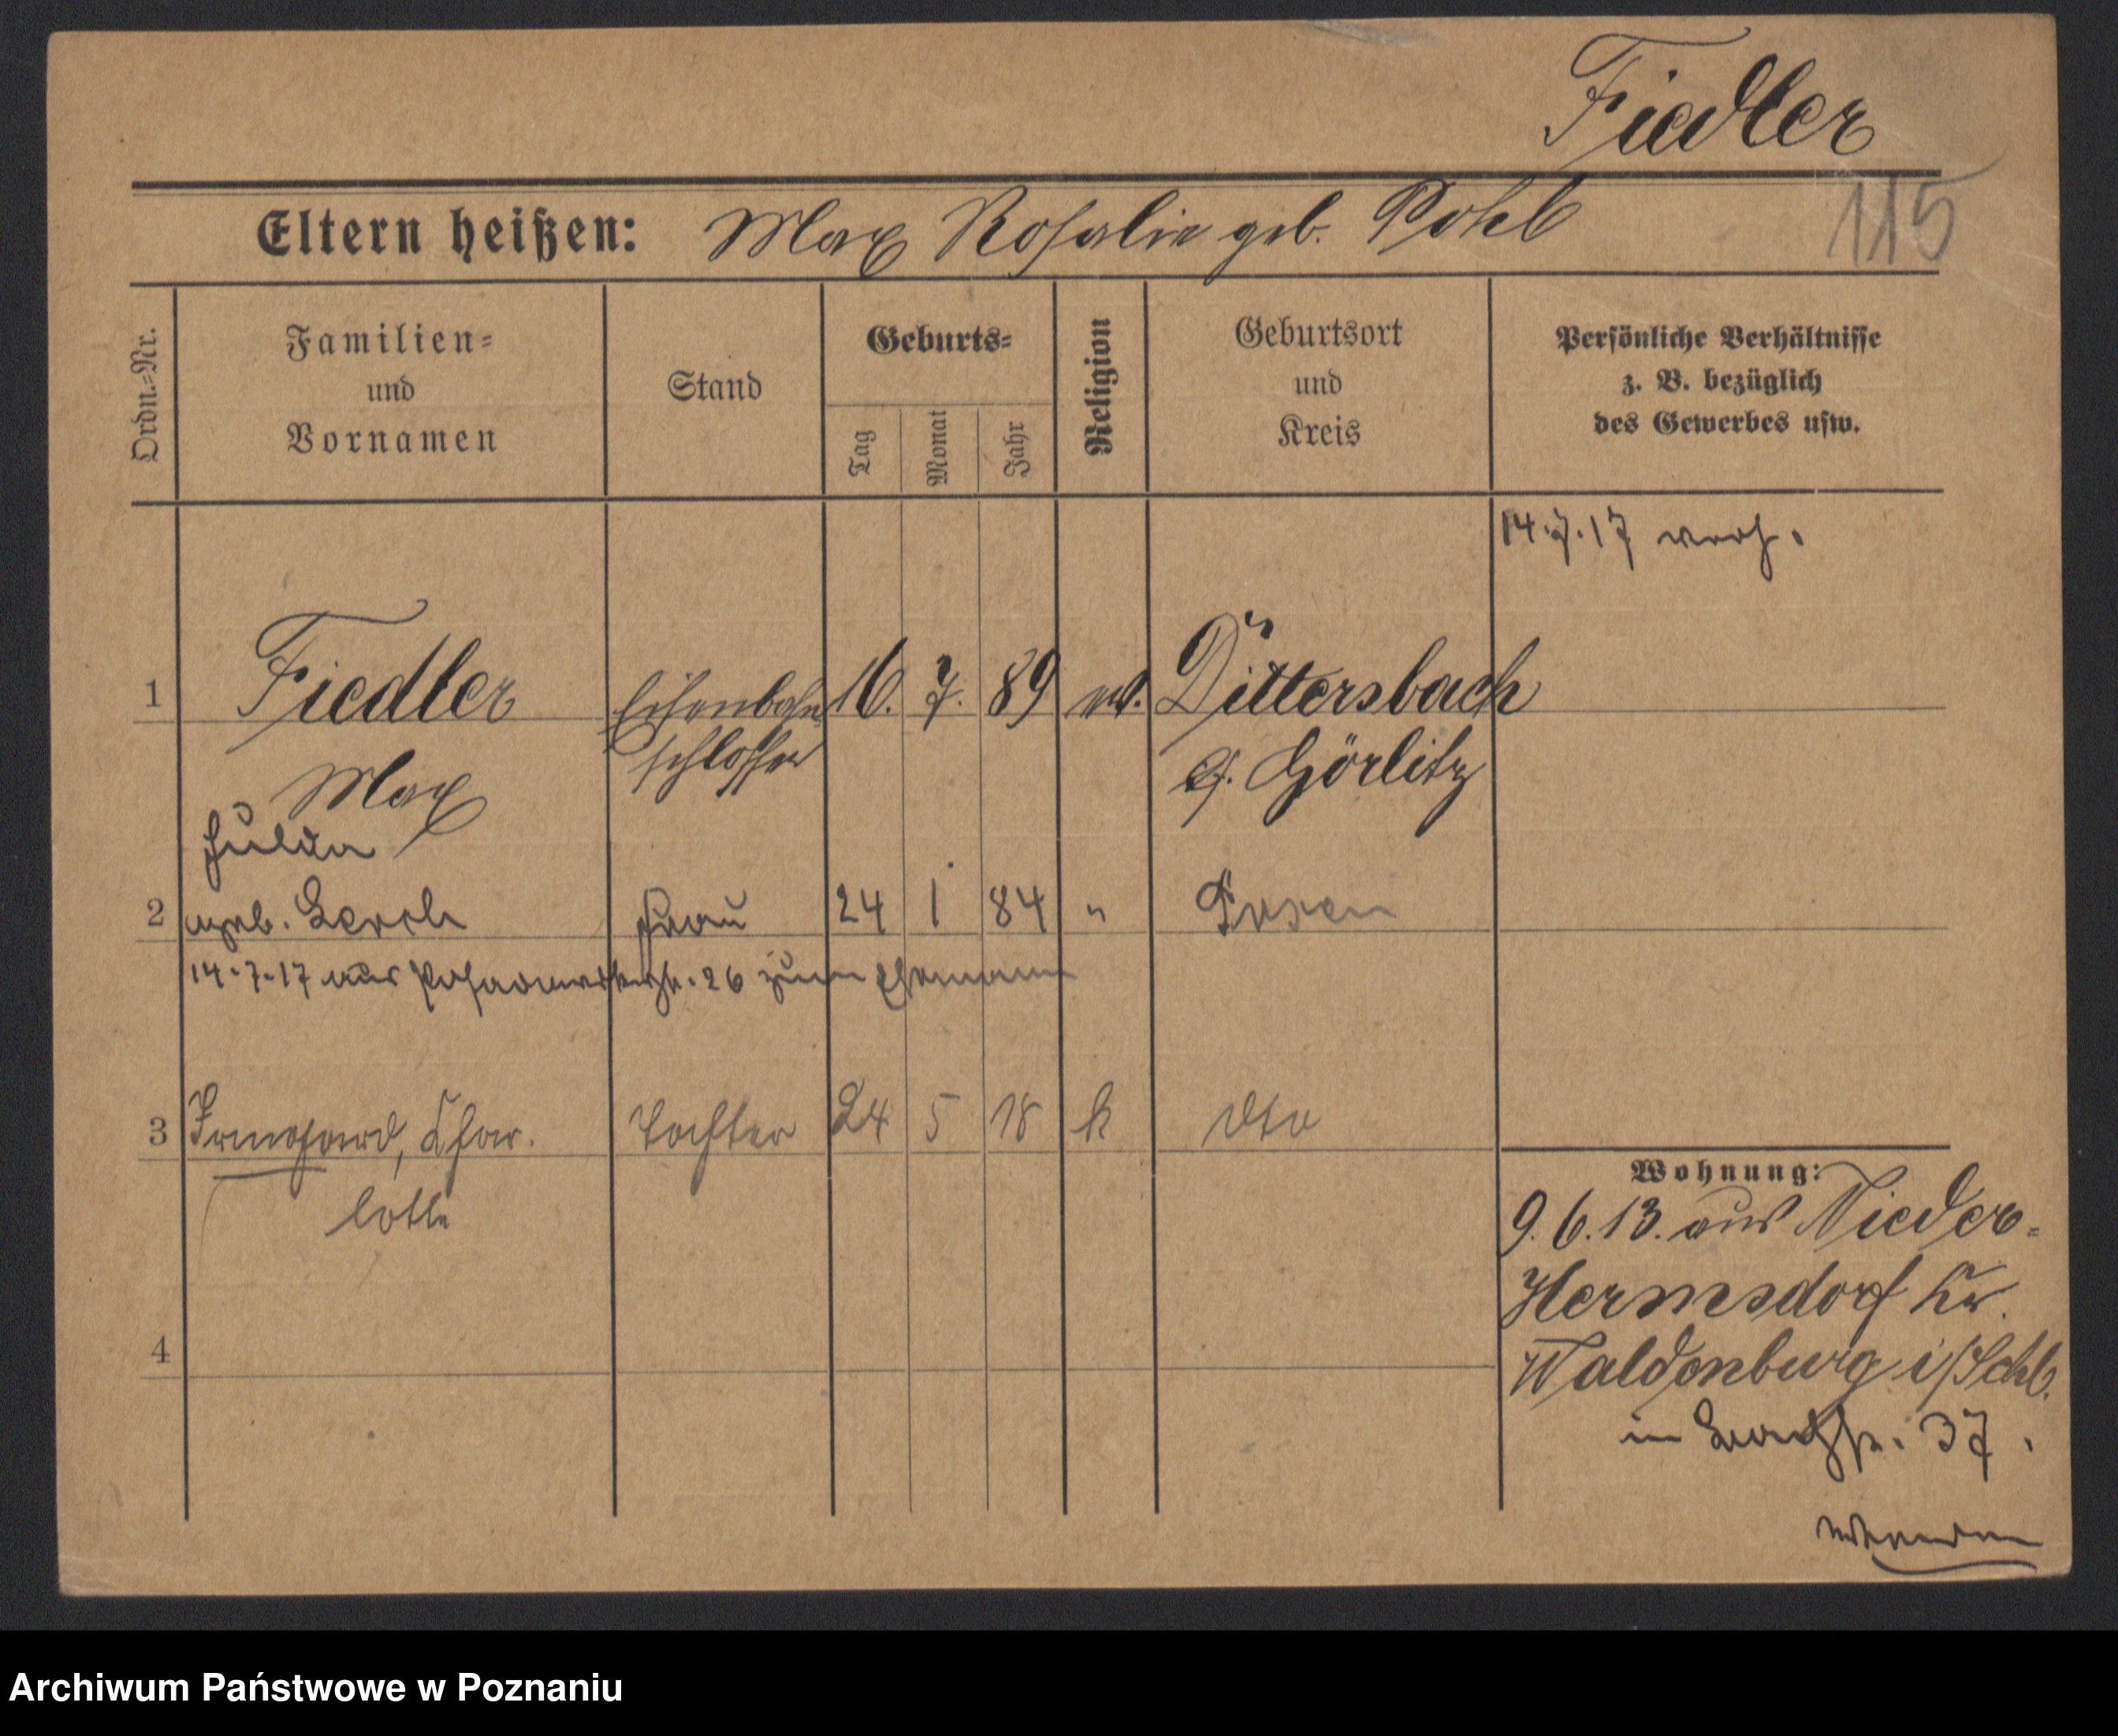 Fiedler
115
Eltern heißen: Max Rosalie geb. Pohl
Ordn.=Nr.
Familien=
und
Vornamen
Stand
Geburts=
Tag
Monat
Jahr
Religion
Geburtsort
und
Kreis
Persönliche Verhältnisse
z. B. bezüglich
des Gewerbes usw.
14.7.17 verh.
1 Fiedler Eisenbahn 16. 7. 89 ev. Dittersbach
schlosser
Görlitz
Max
Hulda
2 geb. Lerch Frau 24 1 84 " Posen
14.7.17 aus 26 zum Ehemann
3 Irmgard, Char. Tochter 24 5 18 k dto
lotte
4
Wohnung:
9.6.13. aus Nieder-
Hermsdorf Kr.
Waldenburg i/Schl.
in 37.
Archiwum Państwowe w Poznaniu